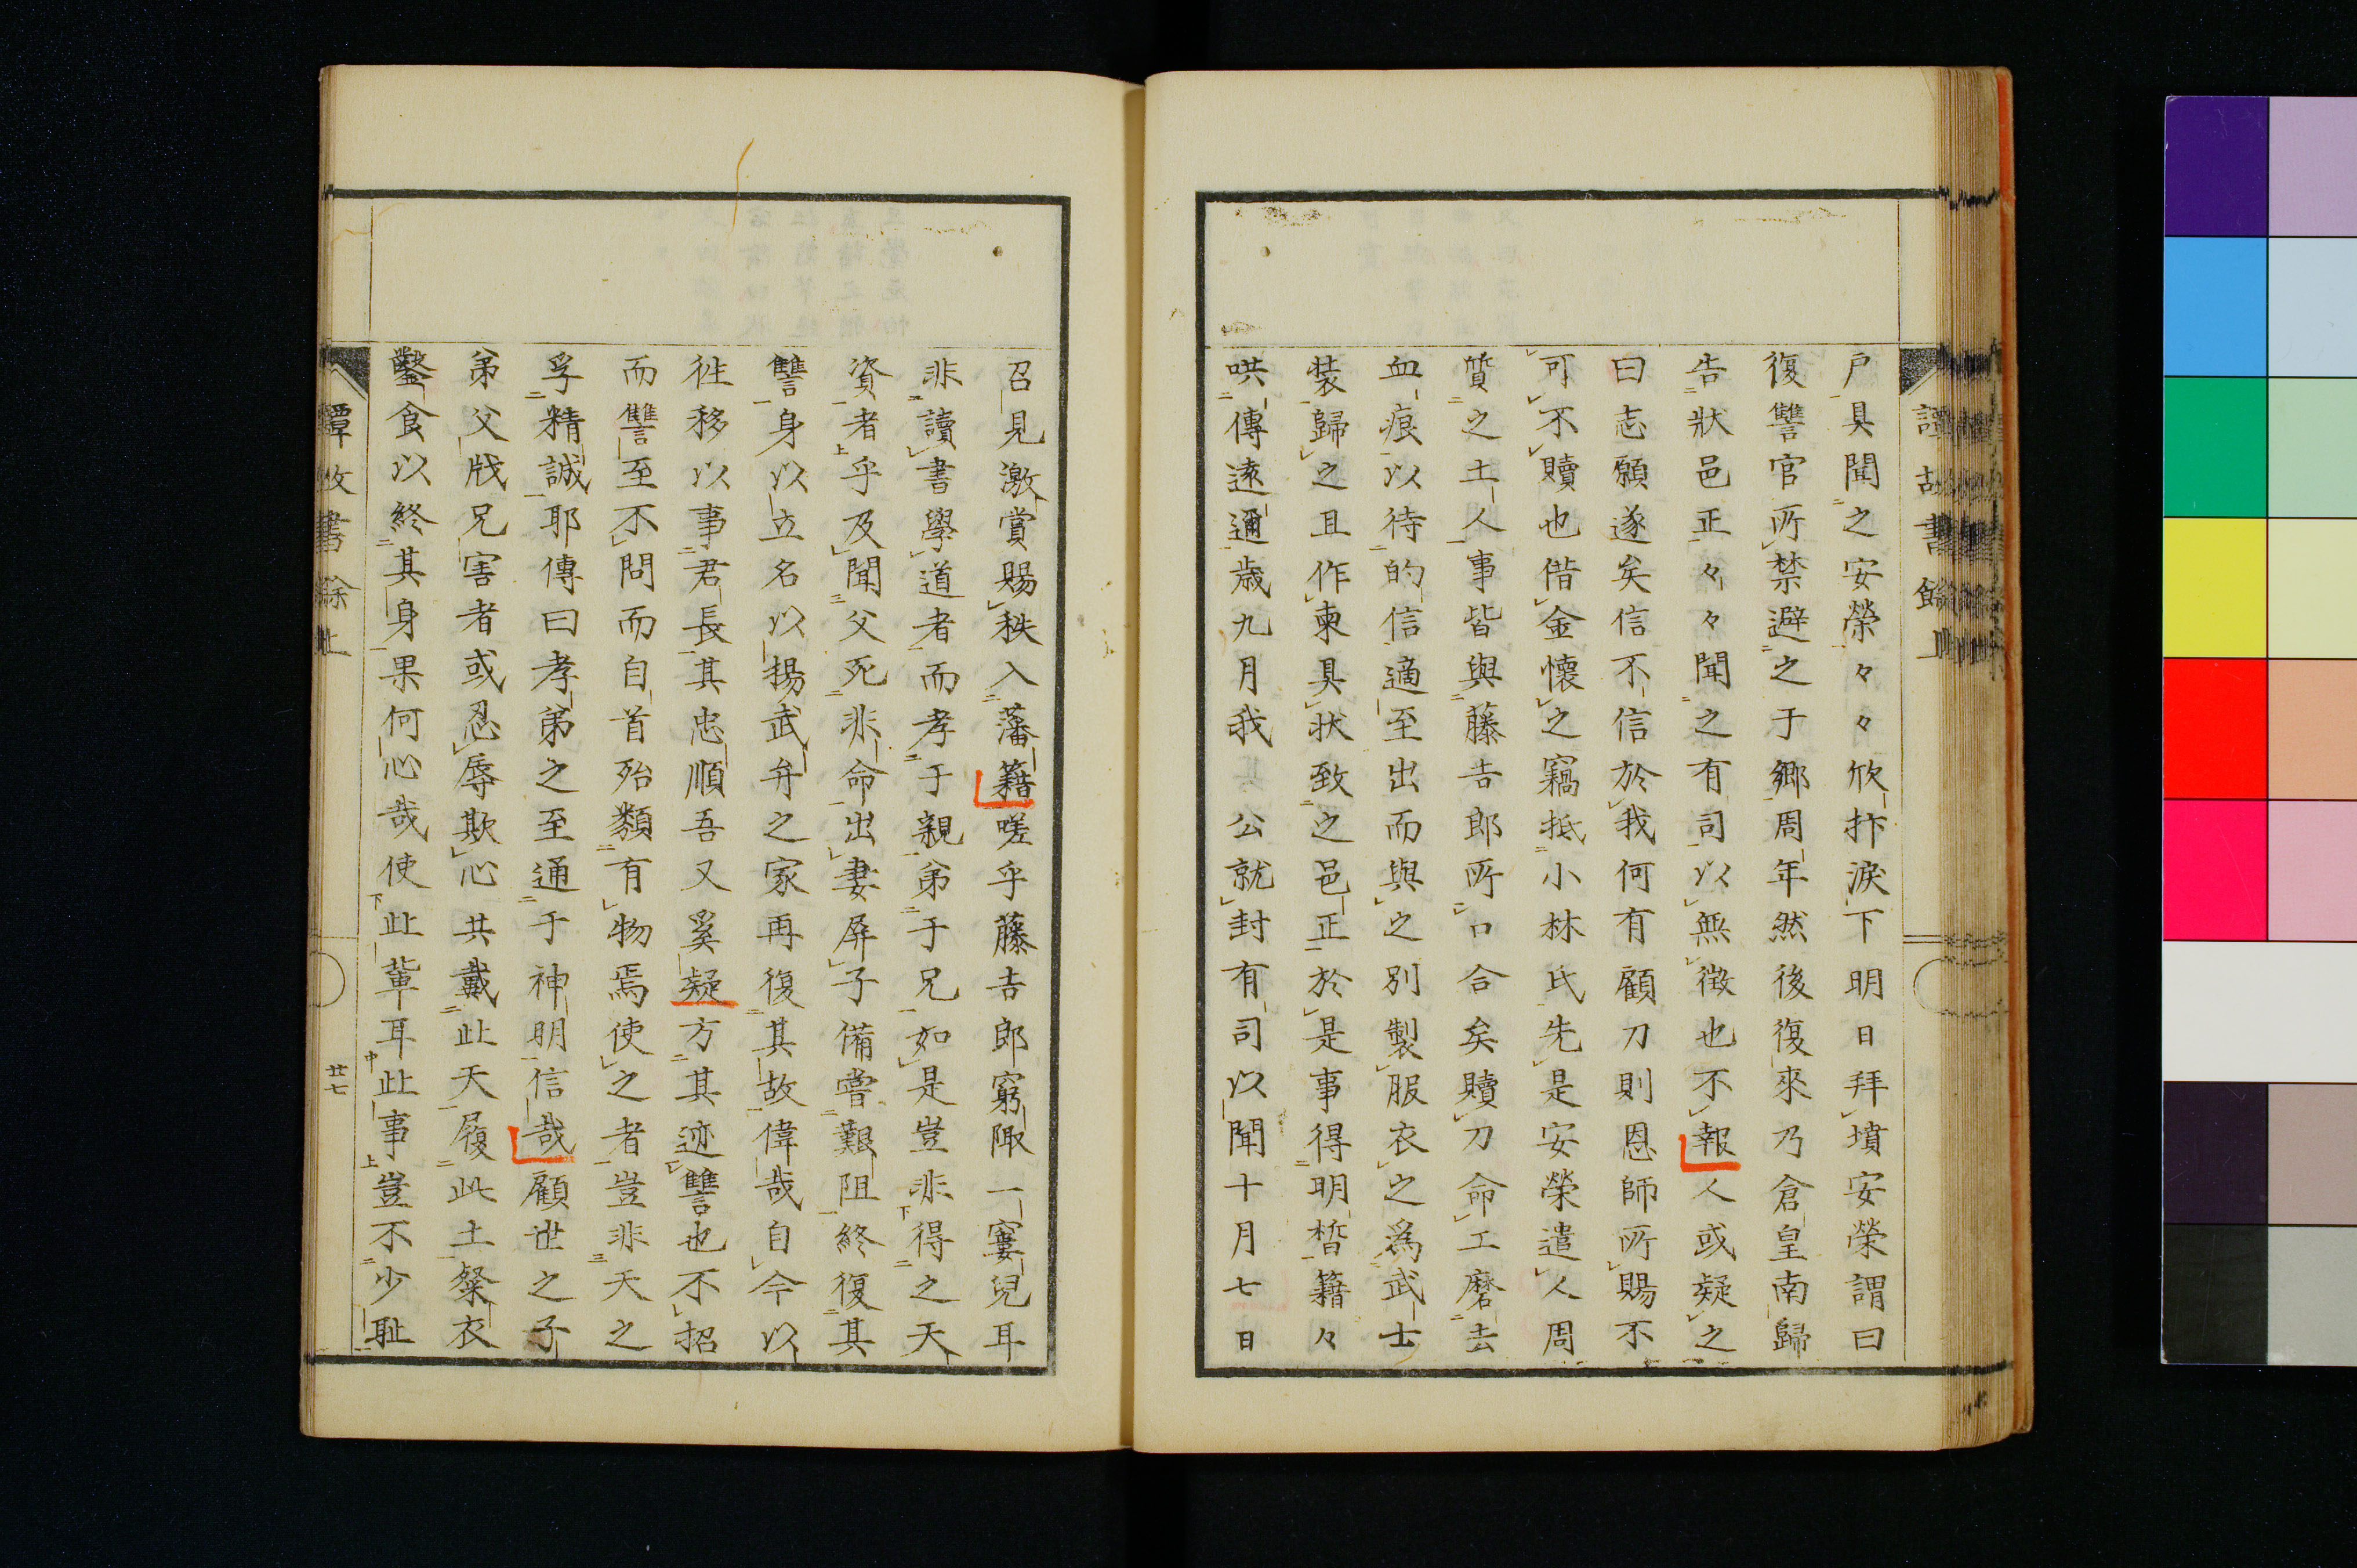 戸具聞之安榮々々欣抃淚下明日拜墳安榮謂曰
復讐官所禁避之于鄉周年然後復來乃倉皇南歸
告狀邑正々々聞之有司以無徴也不報人或疑之
曰志願遂矣信不信於我何有顧刀則恩師所賜不
可不贖也借金懷之竊抵小林氏先是安榮遣人周
質之土人事皆與藤吉郎所口合矣贖刀命工磨去
血痕以待的信適至出而與之別製服衣之爲武士
裝歸之且作東具状致之邑正於是事得明晳籍々
哄傳遠邇歳九月我公就封有司以聞十月七日
召見激賞賜秩入藩籍嗟乎藤吉郎窮陬一窶兒耳
非讀書學道者而孝于親弟于兄如是豈非得之天
資者乎及聞父死非命出妻屏子備嘗艱阻終復其
讐身以立名以揚武弁之家再復其故偉哉自今以
徃移以事君長其忠順吾又奚疑方其迹讐也不招
而讐至不問而自首殆類有物焉使之者豈非天之
孚精誠耶傳曰孝弟之至通于神明信哉顧世之子
弟父戕兄害者或忍辱欺心共戴此天履此土粲衣
鑿食以終其身果何心哉使此輩耳此事豈不少耻
廿七